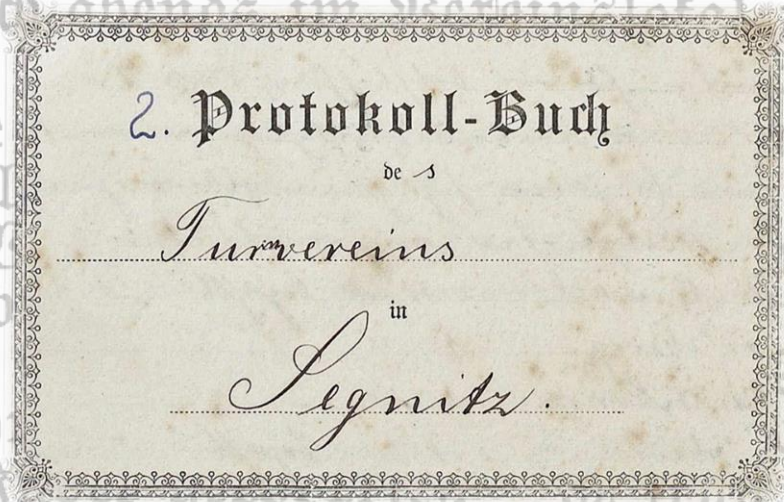 2. Protokoll-Buch
des
Turnvereins
in
Segnitz.